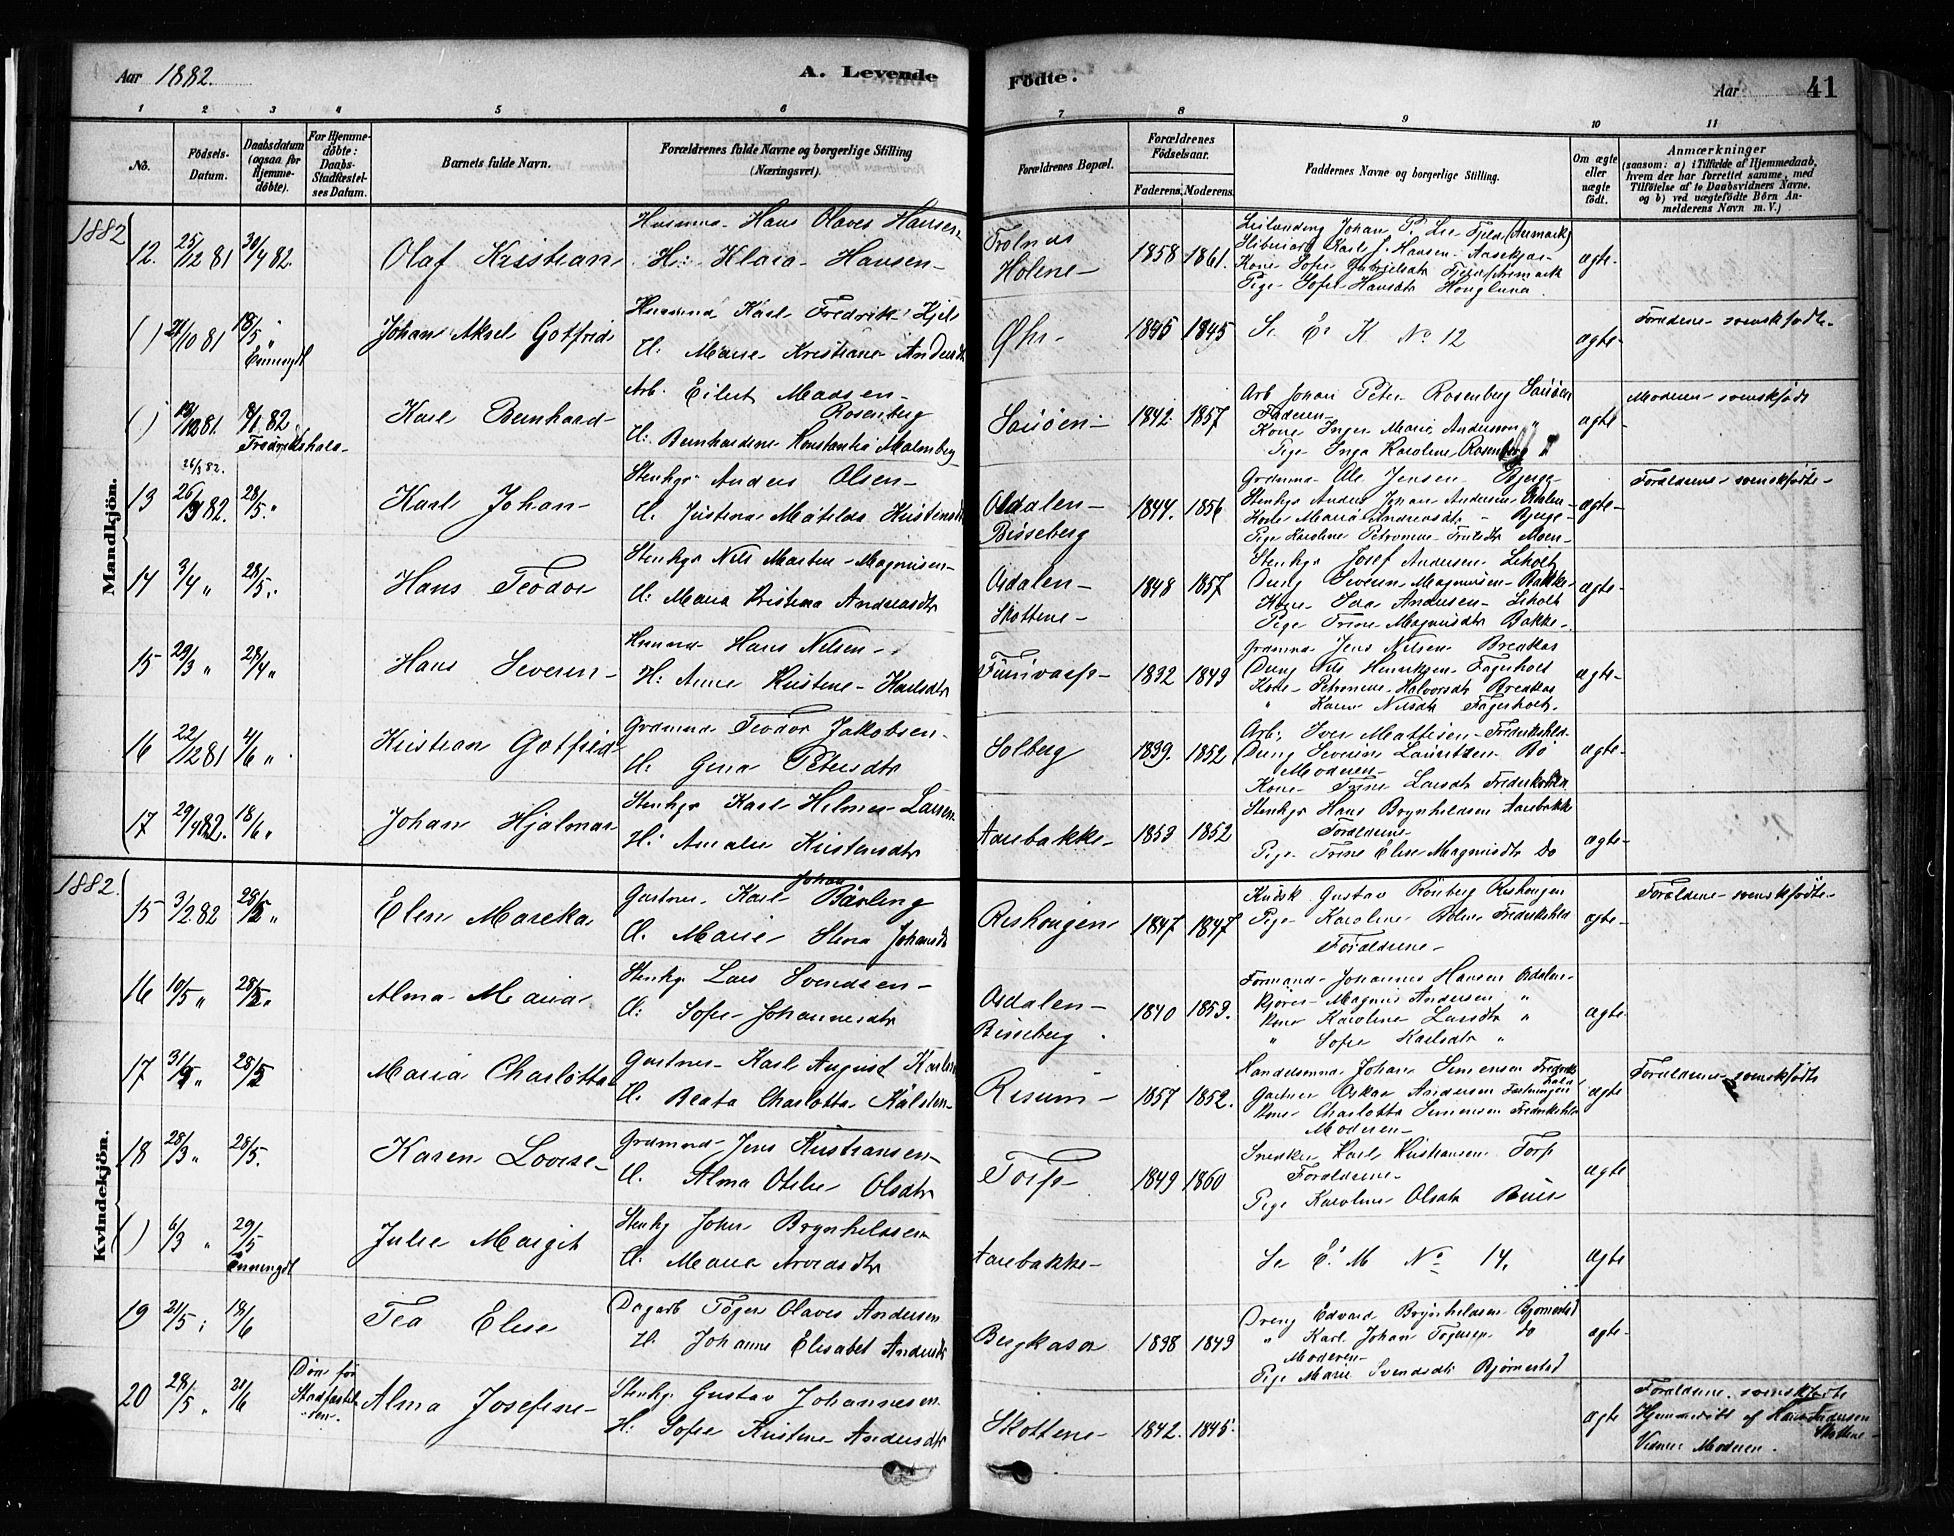 Aar 1882. A. Levende Födte. Aar 41
1 2 3 4 5 6 7 8 9 10 11
Nô.
Födsels-Datum.
Daabsdatum (ogsaa for Hjemme-döbte).
For Hjemme-döbte: Daabs-Stadfæstel-ses Datum.
Barnets fulde Navn.
Forældrenes fulde Navne og borgerlige Stilling (Næringsvei).
Forældrenes Bopæl.
Forældrenes Födselsaar.
Faderens. Moderens.
Faddernes Navne og borgerlige Stilling.
Om ægte eller uægte födt.
Anmærkninger
(saasom: a) i Tilfælde af Hjemmedaab,
hvem der har forrettet samme, med
Tilföielse af to Daabsvidners Navne.
og b) ved uægtefödte Börn An-
melderens Navn m. V.)
Mandkjön.
1882
12. 25/12 81 30/4 82. Olaf Kristian
Hans Olaves Hansen
H: Klara Hansen
Holene 1858 1861.
Johan P. Lie
Karl J. Hansen
Kone Sofie
Pige Sofie Hansdtr
ægte
( ) /10 81 18/5 " Enningdl Johan Aksel Gotfrid
Karl Fredrik
H: Marie Kristiane Andersdtr
1845 1845
Se E. K No 12
ægte
Forældrene svenskfödte
( ) 19/12 81. 8/1 82 Fredrikshald Karl Bernhard
Arb. Eilert Madsen
Rosenberg
H: Bernhardine Konstantia Malmberg
Sauöen 1842 1857
Arb Johan Peter Rosenberg Sauöen
Faderen
Kone Inger Marie Andersen "
Pige Inga Karoline Rosenberg "
ægte
Moderen svenskfödt
26/3 82.
13 26/3 82. 28/5. " Karl Johan
Stenhgr Anders Olsen
H. Justina Matilda
Asdalen
Bisseberg 1844. 1856
Grdmnd Ole Jensen Bjerge
Stenhgr Anders Johan Andersen Asdalen
Kone Maria Andreasdtr Bjerge
Pige Karoline Petronene Moen
ægte
Forældrene svenskfödte
14 3/4 " 28/5. Hans Teodor
Stenhgr Nils Martin Magnusen
H: Maria Kristina Andreasdtr
Asdalen
Skottene 1848 1857
Stenhgr Josef Andersen Liholt
Dreng Severin Magnusen Bakke
Kone Ida Andersen Liholt
Pige Trine Magnusdtr Bakke
ægte
15 29/3 " 28/4 " Hans Severin
Hans Nilsen
H: Anne Kristine Karlsdtr
1832 1849
Grdmnd Jens Nilsen
Dreng Nils Henriksen Fagerholt
Kone Petronene Halvorsdtr
" Karen Nilsdtr Fagerholt
ægte
16 22/12 81 4/6 " Kristian Gotfrid
Grdmnd Teodor Jakobsen
H: Gina Petersdtr
Solberg 1839. 1852
Arb. Iver Mattisen Frederikshld
Dreng Severin Lauritzen Bö
Moderen
Kone Trine Larsdtr Frederikshld
ægte
17 29/4 82. 18/6 " Johan Hjalmar
Stenhgr Karl Hilmer Larsen
H: Amalie Kristensdtr
Aarebakke 1853 1852
Stenhgr Hans Brynhildsen Aarebakke
Forældrene
Pige Trine Elise Magnusdtr Do
ægte
Kvindekjön.
1882.
15 3/2 82 28/5 " Elen Mareka
Gartner Karl Johan Bärling
H. Marie Stina Johansdtr
Rishougen 1847 1847
Kudsk Gustav Rönberg Rishougen
Pige Karoline Frederikshld
Forældrene
ægte
Forældrene svenskfödte
16 10/5 " 28/5 " Alma Maria
Stenhgr Lars Svendsen
H: Sofie Johannesdtr
Asdalen
Bisseberg 1840 1853.
Formand Johannes Hansen Asdalen
Kjörer Magnus Andersen "
Kone Karoline Larsdtr "
" Sofie Karlsdtr "
ægte
17 28/5 Maria Charlotta
Gartner Karl August Karlsen
H. Beata Charlotta
Risum 1857 1852.
Handelsmnd Johan Simensen Fredriks hald
Gartner Oskar Andersen Fæstningen
Kone Charlotta Simensen Frederikshld
Moderen
ægte
Forældrene svenskfödt
18 28/3 " 28/5. Karen Lovise
Grdmnd Jens Kristiansen
H. Alma Otilie Olsdtr
Torp 1849 1860
Snedker Karl Kristiansen Torp
Forældrene
Pige Karoline Olsdtr
ægte
( ) 6/3 " 29/5 Enningdl Julie Margit
Stenhgr Johan Brynhildsen
H. Marie
Aarebakke
Se E. M No 14.
ægte
19 21/5 18/6 Tea Elise
Dagarb Töger Olaves Andersen
H: Johanne Elisabet Andersdtr
Bergkasa 1838 1849
Dreng Edvard Brynhildsen Bjørnestad
" Karl Johan Tögersen do
Moderen
Pige Marie Svendsdtr Bjørnestad
ægte
20 28/5 " /6 Död för Stadfæstel-sen. Alma Josefine
Stenhgr Gustav Johannesen
H: Sofie Kristine Andersdtr
Skottene 1842. 1845.
ægte
Forældrene svenskfödte
Hjemmedöbt af Andersen
Skottene
Vidner Moderen.